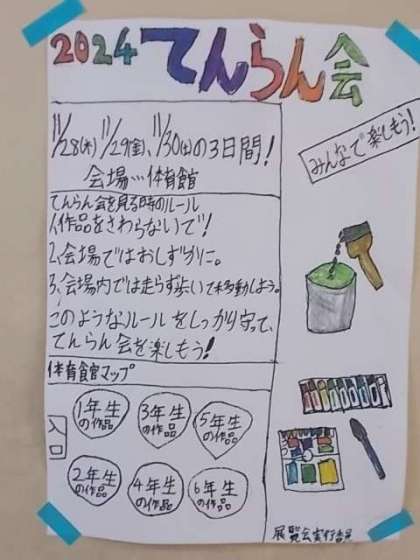 2024 てんらん会
11/28(木)11/29(金)、11/30(土)の3日間!
会場…体育館
みんなで楽しもう!
てんらん会を見る時のルール
1、作品をさわらないで!
2、会場ではおしずかに。
3、会場内では走らず歩いて移動しよう。
このようなルールをしっかり守って、
てんらん会を楽しもう!
体育館マップ
入口
1年生
の作品
3年生
の作品
5年生
の作品
2年生
の作品
4年生
の作品
6年生
の作品
展覧会実行委員